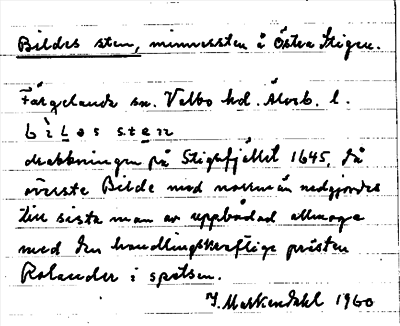 Bildes sten, minnessten å Östra Stigen.
Färgelanda sn. Valbo hd. Älvsb. l.
b ì l ə s s t e n
drabbningen på Stigsfjället 1645, då
överste Bilde med norrmän nedgjordes
till sista man av uppbådad allmoge
med den handlingskraftige prästen
Rolander i spetsen.
J. Markendahl 1960